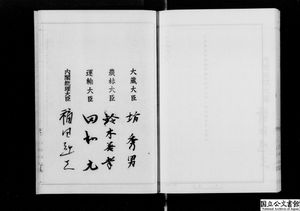 大蔵大臣 坊秀男
農林大臣 鈴木善幸
運輸大臣 田村元
内閣総理大臣 福田赳夫
国立公文書館
National Archives of Japan